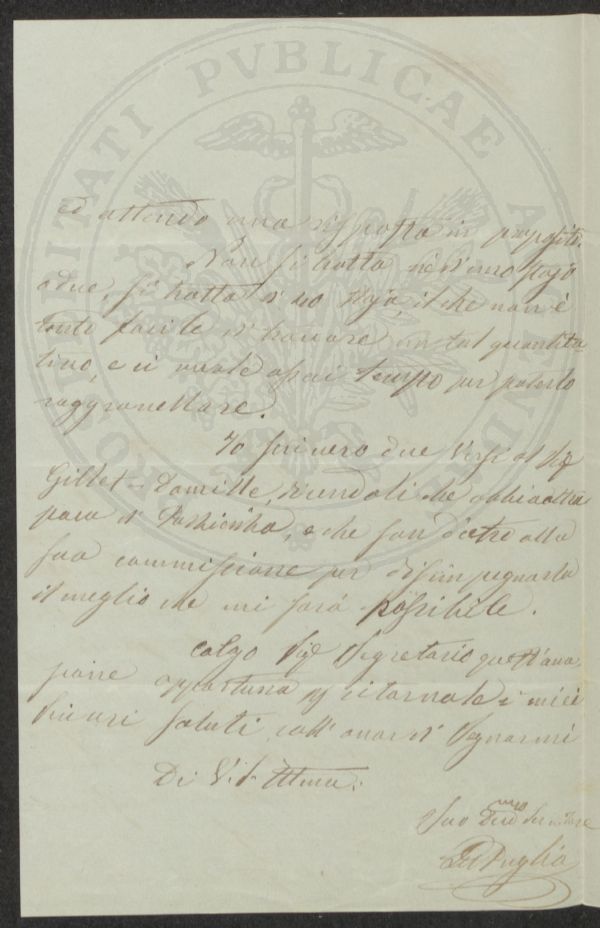 SECURITATI PVBLICAE
ed attendo una risposta in proposito.
Non si tratta nè d'uno pajo
o due, si tratta d' 40 paja, il che non è
tanto facile d' trovare un tal quantita
tivo, e ci vuole assai tempo per poterlo
raggranellare.
Io scriverò due versi al Sig
Gillet-Damitte, dicendoli che abbia altra
para d' Pazienza, e che son dietro alla
sua commissione per disimpegnarla
il meglio che mi sarà possibile.
Colgo Sigr Segretario quest'occa
sione opportuna di ritornale i miei
sinceri saluti, coll' onor d' Segnarmi
Di V. S. Illma.
Suo Devmo Servitore
Puglia